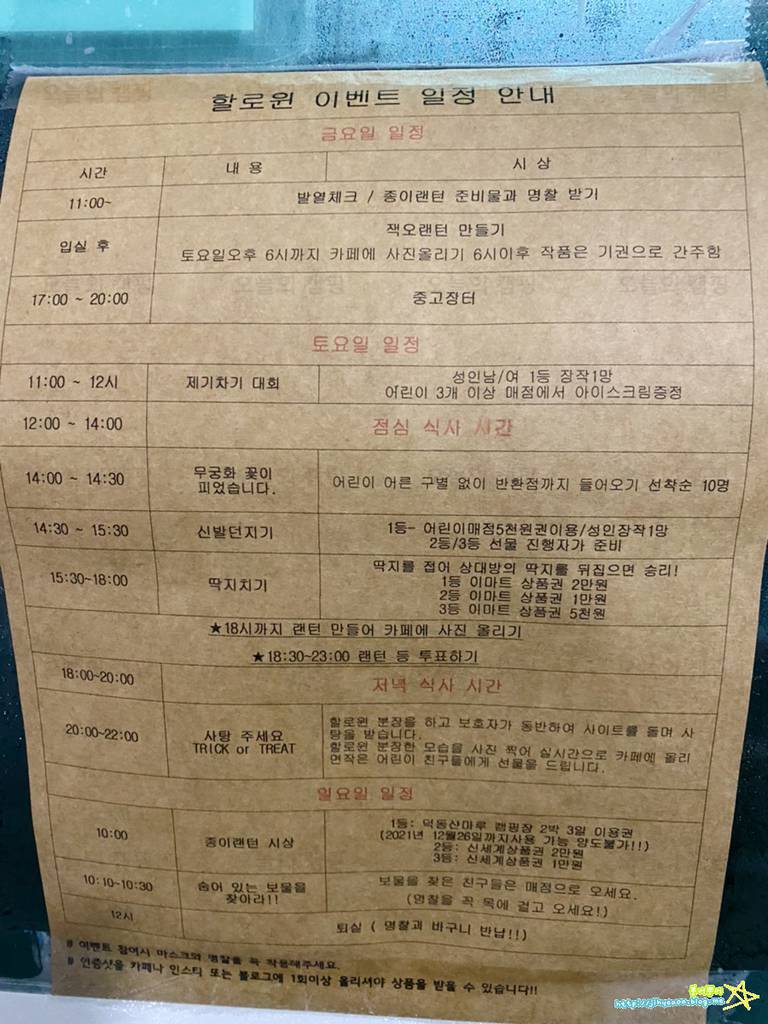 할로윈 이벤트 일정 안내
금요일 일정
시간 내 용 시 상
11:00~ 발열체크 / 종이랜턴 준비물과 명찰 받기
입실 후 잭오랜턴 만들기
토요일오후 6시까지 카페에 사진올리기 6시이후 작품은 기권으로 간주함
17:00 ~ 20:00 중고장터
토요일 일정
11:00 ~ 12시 제기차기 대회 성인남/여 1등 장작1망
어린이 3개 이상 매점에서 아이스크림증정
12:00 ~ 14:00 점심 식사 시간
14:00 ~ 14:30 무궁화 꽃이
피었습니다. 어린이 어른 구별 없이 반환점까지 들어오기 선착순 10명
14:30 ~ 15:30 신발던지기 1등- 어린이매점5천원권이용/성인장작1망
2등/3등 선물 진행자가 준비
15:30~18:00 딱지치기 딱지를 접어 상대방의 딱지를 뒤집으면 승리!
1등 이마트 상품권 2만원
2등 이마트 상품권 1만원
3등 이마트 상품권 5천원
★18시까지 랜턴 만들어 카페에 사진 올리기
★18:30~23:00 랜턴 등 투표하기
18:00~20:00 저녁 식사 시간
20:00~22:00 사탕 주세요
TRICK or TREAT 할로윈 분장을 하고 보호자가 동반하여 사이트를 돌며 사
탕을 받습니다.
할로윈 분장한 모습을 사진 찍어 실시간으로 카페에 올리
면작은 어린이 친구들에게 선물을 드립니다.
일요일 일정
10:00 종이랜턴 시상 1등: 덕동산마루 캠핑장 2박 3일 이용권
(2021년 12월26일까지사용 가능 양도불가!!)
2등: 신세계상품권 2만원
3등: 신세계상품권 1만원
10:10~10:30 숨어 있는 보물을
찾아라!! 보물을 찾은 친구들은 매점으로 오세요.
(명찰을 꼭 목에 걸고 오세요!)
12시 퇴실 ( 명찰과 바구니 반납!!)
# 이벤트 참여시 마스크와 명찰을 꼭 착용해주세요.
# 인증샷을 카페나 인스티 또는 블로그에 1회이상 올리셔야 상품을 받을 수 있습니다!!